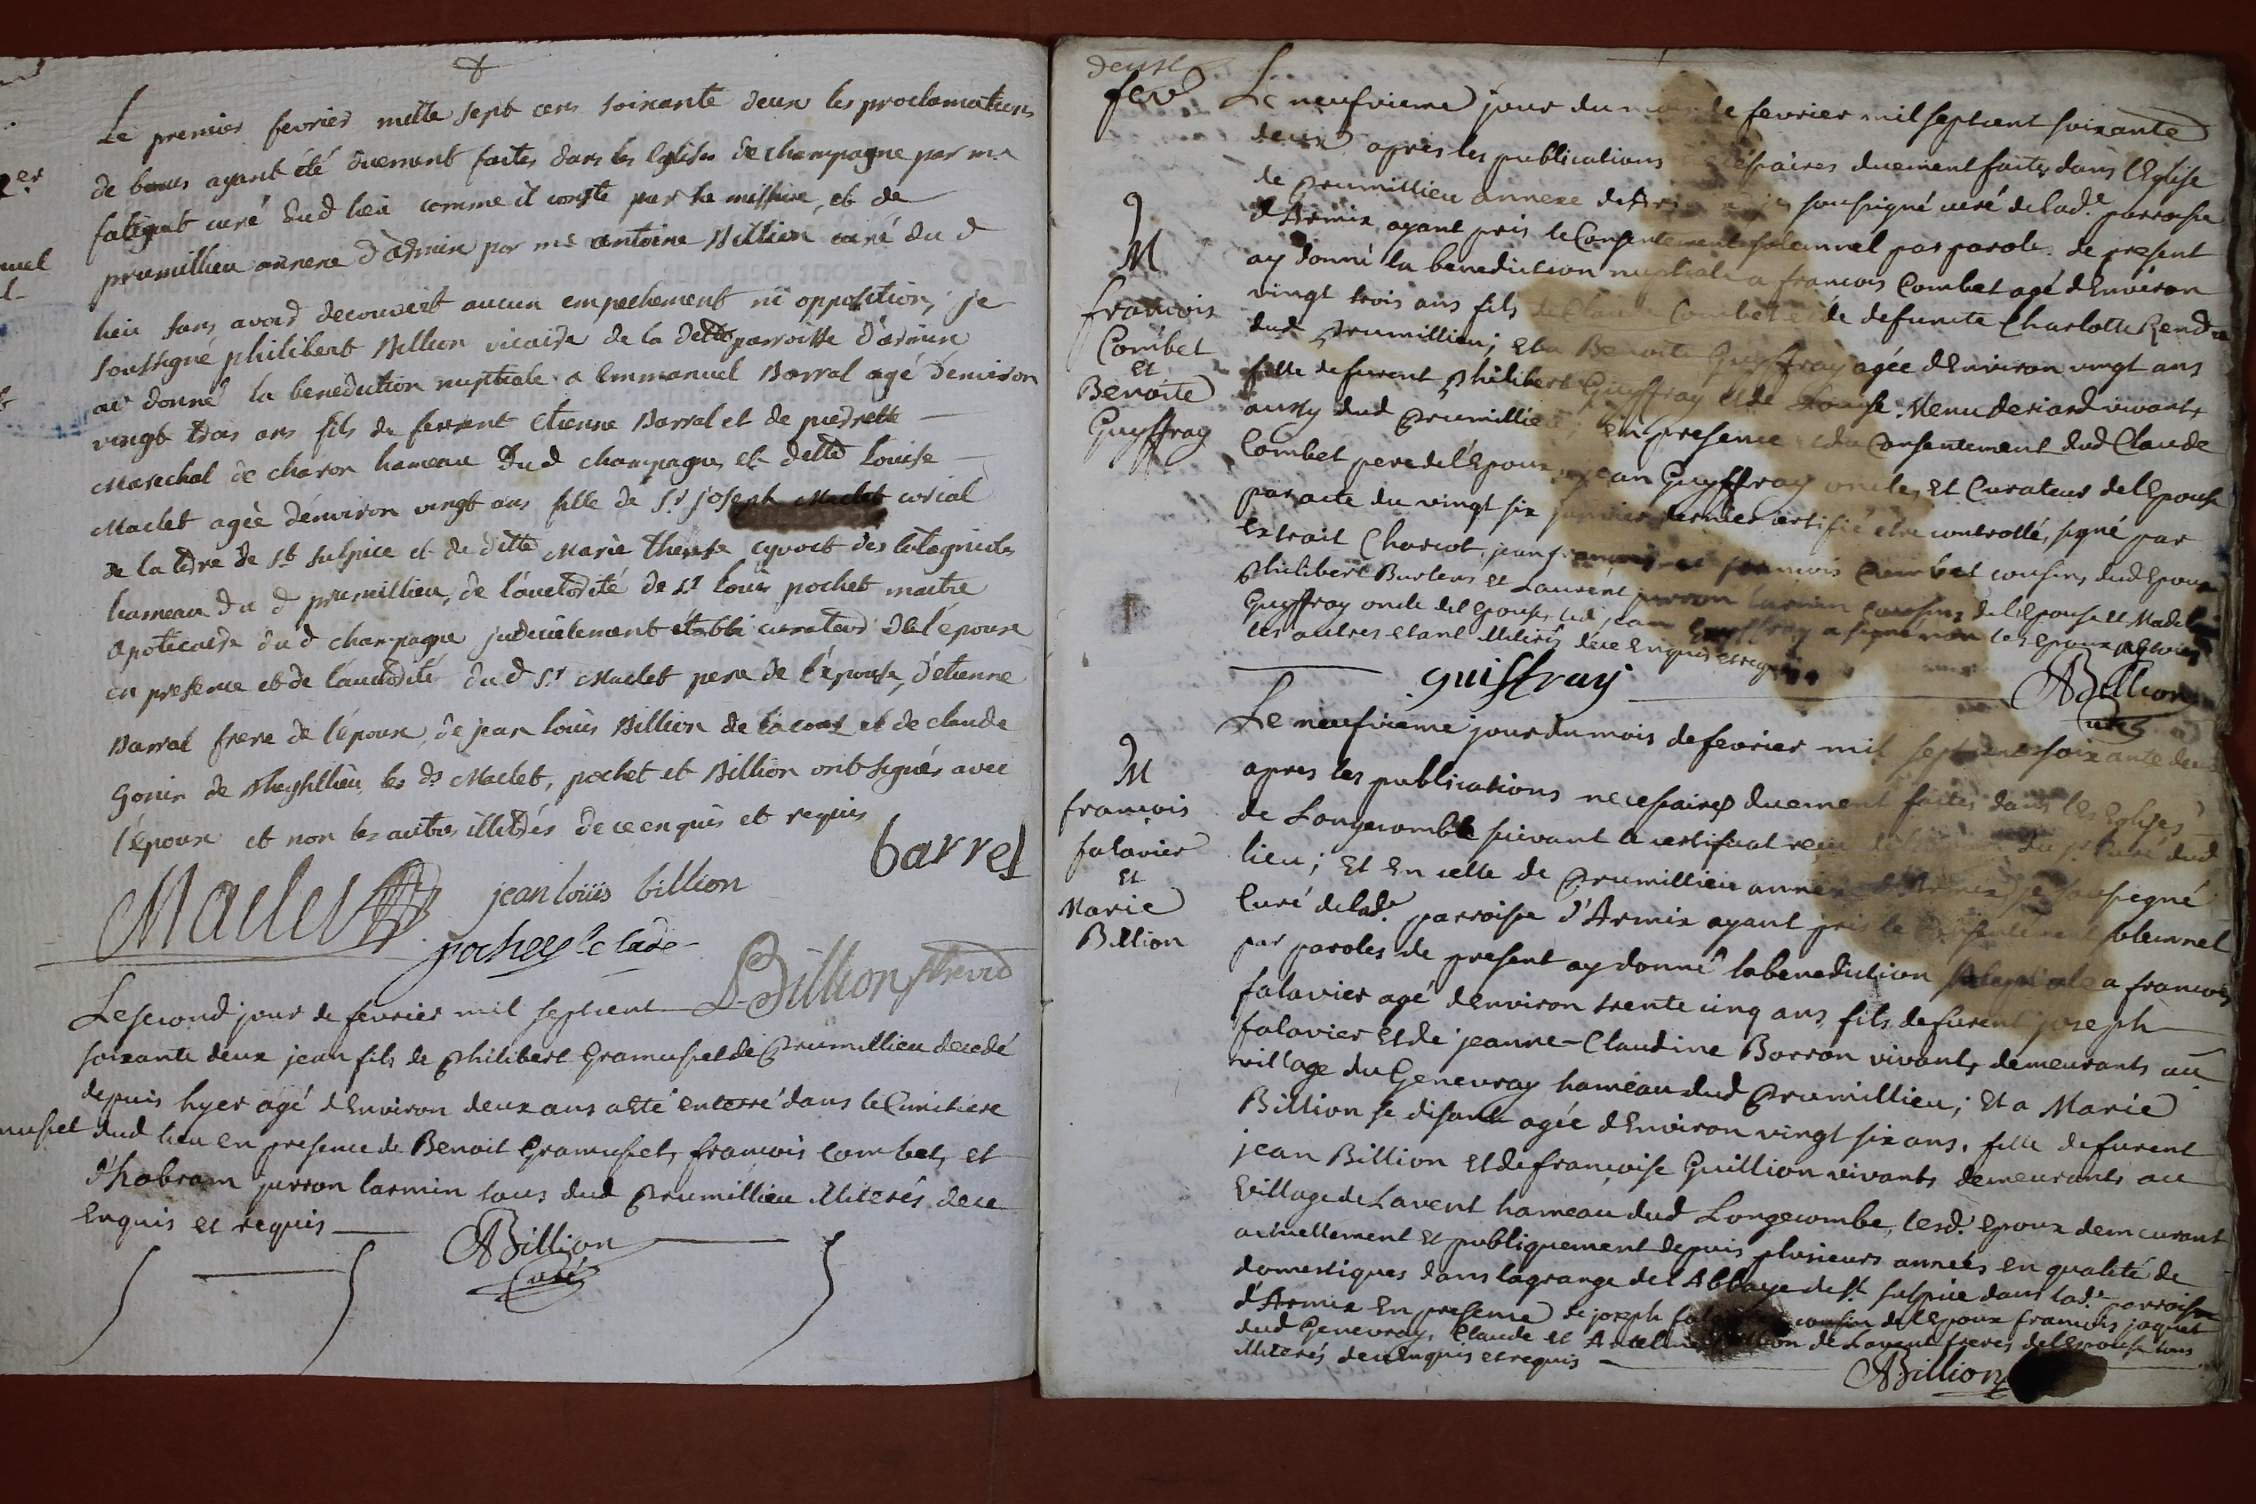 Le premier fevrier mille sept cens soixante deux les proclamations
de bans ayant été duement faites dans les Eglises de champagne par mr
curé dud lieu comme il conste par sa missive, et de
prumillieu annexe d'armix par me antoine Billion curé du d
lieu sans avoir decouvert aucun empechement ni opposition, je
soussigné philibert Billion vicaire de la dette parroisse d'armix
ai donné la benediction nuptiale a Emmanuel Barral agé d'environ
vingt trois ans fils de feu Etienne Barral et de pierrette
Marechal de charon hameau dud champagne, et dette Louise
Maclet agée d'environ vingt ans fille de Sr joseph Maclet
de la terre de St sulpice et de ditte Marie therese
hameau du d prumillieu, de l'autorité de Sr Louis pochet maitre
apoticaire dud champagne judiciélement établi curateur de l'épouse
en presence et de l'autorité du d Sr Maclet pere de l'épouse, d'etienne
Barral frere de l'époux, de jean louis Billion de lacoux et de claude
Gonin de les ds Maclet, pochet et Billion ont signés avec
l'époux et non les autres illetrés de ce enquis et requis
barrel
Maclet
jean loüis billion
Billion
Le second jour de fevrier mil septcent
soixante deux jean fils de Philibert Gramusset de Prumillieu decedé
depuis hyer agé d'Environ deux ans a Eté enterré dans le Cimitiere
dud lieu en presence de Benoit Gramusset, françois Combet, et
d'habram perron larmin tous dud Prumillieu illiterés de ce
Enquis et requis
ABillion
Curé
fevr
M
françois
Combet
Et
Benoite
Guyffray
Le neufvieme jour du de fevrier mil septcent soixante
deux après les publications duement faites dans l'Eglise
de Prumillieu annexe soussigné curé de lade parroisse
d'Armix ayant pris le Consentement solemnel par parole de present
ay donné la benediction nuptiale a françois Combet agé d'Environ
vingt trois ans fils de Claude Combet et de defuncte Charlotte
dud Prumillieu; Et a Benoite Guyffray agée d'Environ vingt ans
fille de furent Philibert Guyffray et de Louise vivants
aussy dud Prumillieu; En presence et du Consentement dud Claude
Combet pere de l'Epoux, jean Guyffray oncle, Et Curateur de l'Epouse
par acte du vingt six janvier dernier certifié etre controllé, signé par
Extrait Charcot, jean françois et françois Combet cousins dud Epoux
Philibert et Laurent perron larmin cousins de l'Epouse
Guyffray oncle de l'Epouse, led jean Guyffray a signé non les epoux
les autres etant illiterés de ce Enquis et requis
guiffray
ABillion
curé
M
françois
falavier
Et
Marie
Billion
Le neufvieme jour du mois de fevrier mil septcent soixante deux
apres les publications necessaires duement faites dans les Eglises
de Longecombe suivant le certificat du Sr Curé dud
lieu; Et En celle de Prumillieu annexe d'Armix je soussigné
Curé de lade parroisse d'Armix ayant pris le Consentement solemnel
par paroles de present ay donné la benediction nuptiale a françois
falavier agé d'environ trente cinq ans, fils de furent joseph
falavier Et de jeanne-Claudine Borron vivants demeurants au
village du Genevray hameau dud Prumillieu; Et a Marie
Billion se disant agée d'Environ vingt six ans, fille de furent
jean Billion Et de françoise Guillion vivants demeurants au
Village de Lavent hameau dud Longecombe, lesd. epoux demeurant
actuellement Et publiquement depuis plusieurs années en qualité de
domestiques dans la grange de l'Abbaye de St sulpice dans lade parroisse
d'Armix En presence de joseph cousin de l'Epoux françois jaquet
dud Genevray, Claude et Antelme Billion de Lavent freres de l'Epouse tous
illiterés de ce Enquis et requis
ABillion